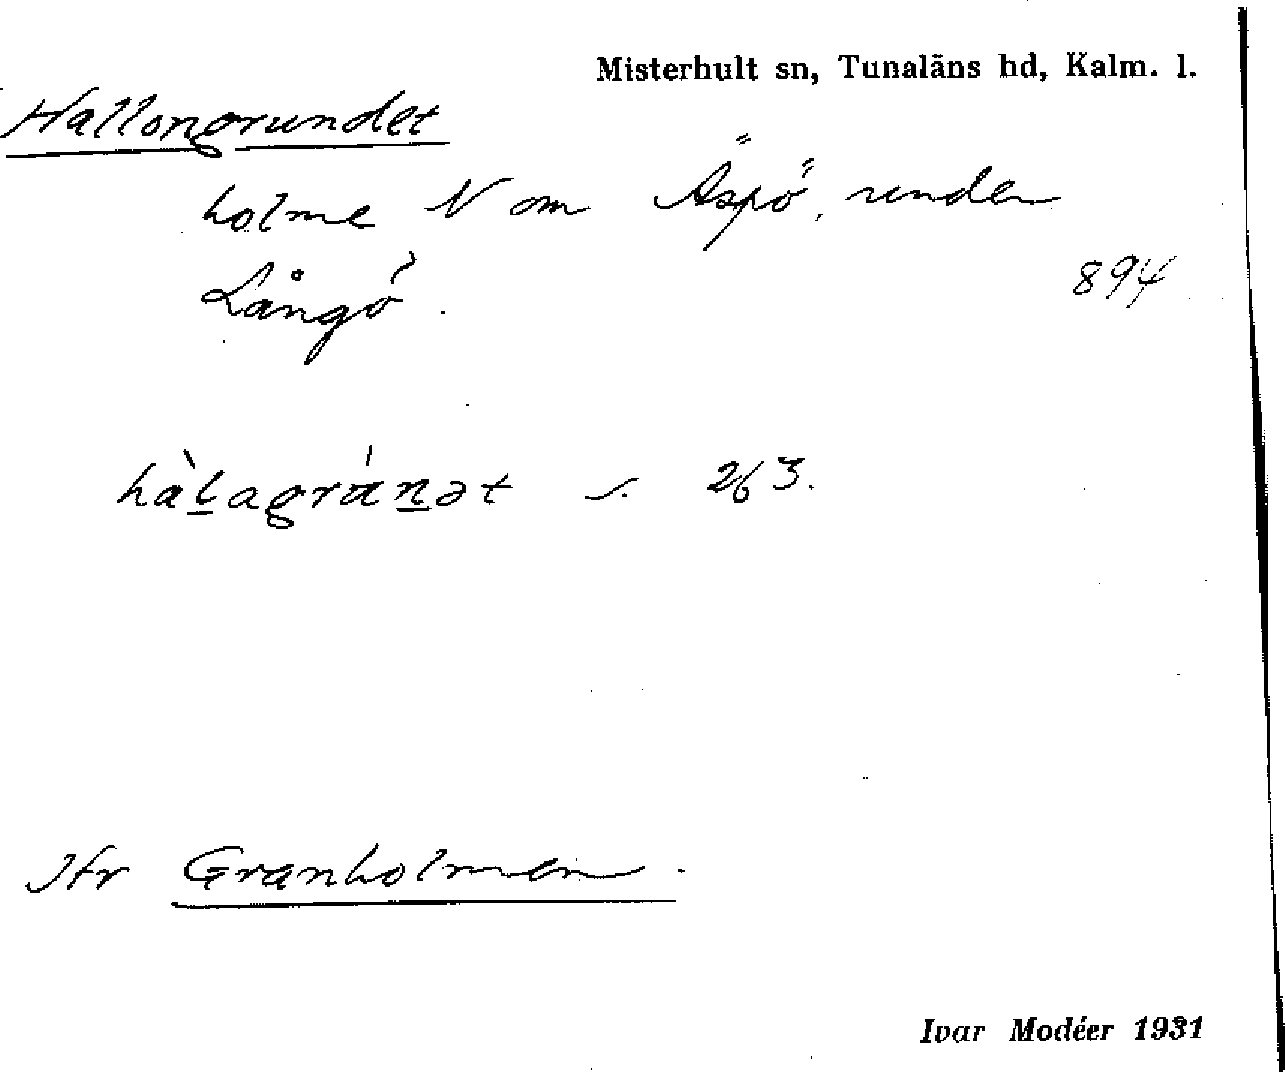 Misterhult sn, Tunaläns hd, Kalm. l.
Hallongrundet
holme N om Äspö, under
Långö.
894
hàlagránət s. 263.
Jfr Granholmen.
Ivar Modéer 1931